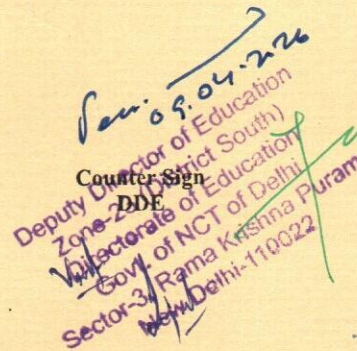 09.04.2026
Counter Sign
DDE
Deputy Director of Education
Zone- (District South)
Directorate of Education
Govt of NCT of Delhi
Sector-3, Rama Krishna Puram
New Delhi-110022